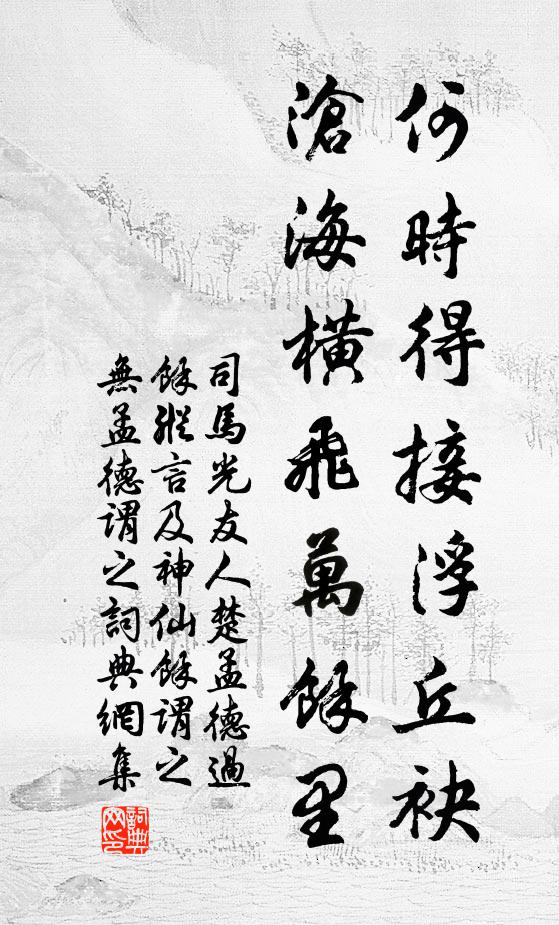 何時得接浮丘袂
滄海橫飛萬餘里
司馬光友人楚孟德過
餘縱言及神仙餘謂之
無孟德謂之詞典網集
詞典网印